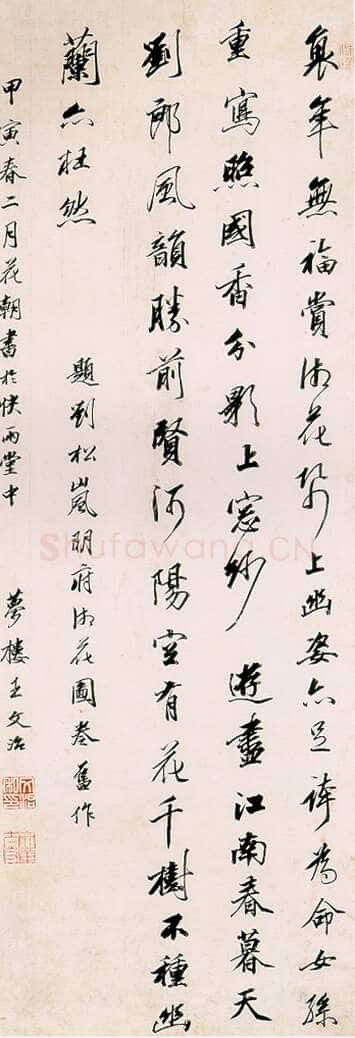 衰年無福賞湘花紙上幽姿亦足誇為命女孫
重寫照國香分影上窓紗 遊盡江南春暮天
劉郎風韻勝前賢河陽空有花千樹不種幽
蘭亦枉然
題劉松嵐明府湘花圖卷舊作
甲寅春二月花朝書於快雨堂中 夢樓王文治
Shufawang.CN